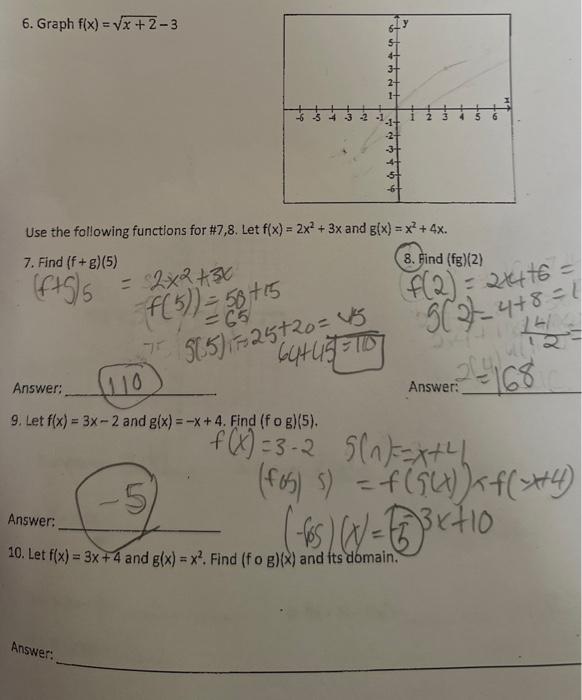 6. Graph f(x) = √x + 2 − 3
y
6
5
4
3
2
1
x
-6 -5 -4 -3 -2 -1 1 2 3 4 5 6
-1
-2
-3
-4
-5
-6
Use the following functions for #7,8. Let f(x) = 2x² + 3x and g(x) = x² + 4x.
7. Find (f + g)(5)
8. Find (fg)(2)
(f+g)5 = 2x2+3x
f(2) = 2x4+6 =
f(5)) = 50+15
= 65
g(2)= 4+8=1
g(5) = 25+20= 45
14
12 =
64+45=110
Answer: 110
Answer: =168
9. Let f(x) = 3x − 2 and g(x) = −x + 4. Find (f o g)(5).
f(x)=3-2 g(n)=-x+4
(fog) 5) = f(g(x)) f(-x+4)
(fog)(x)= -5 3x+10
Answer: -5
10. Let f(x) = 3x + 4 and g(x) = x². Find (f o g)(x) and its domain.
Answer: